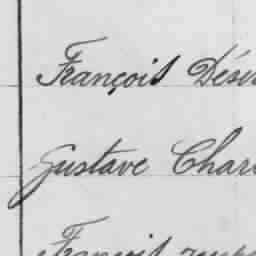 François Dési
Gustave Char
François